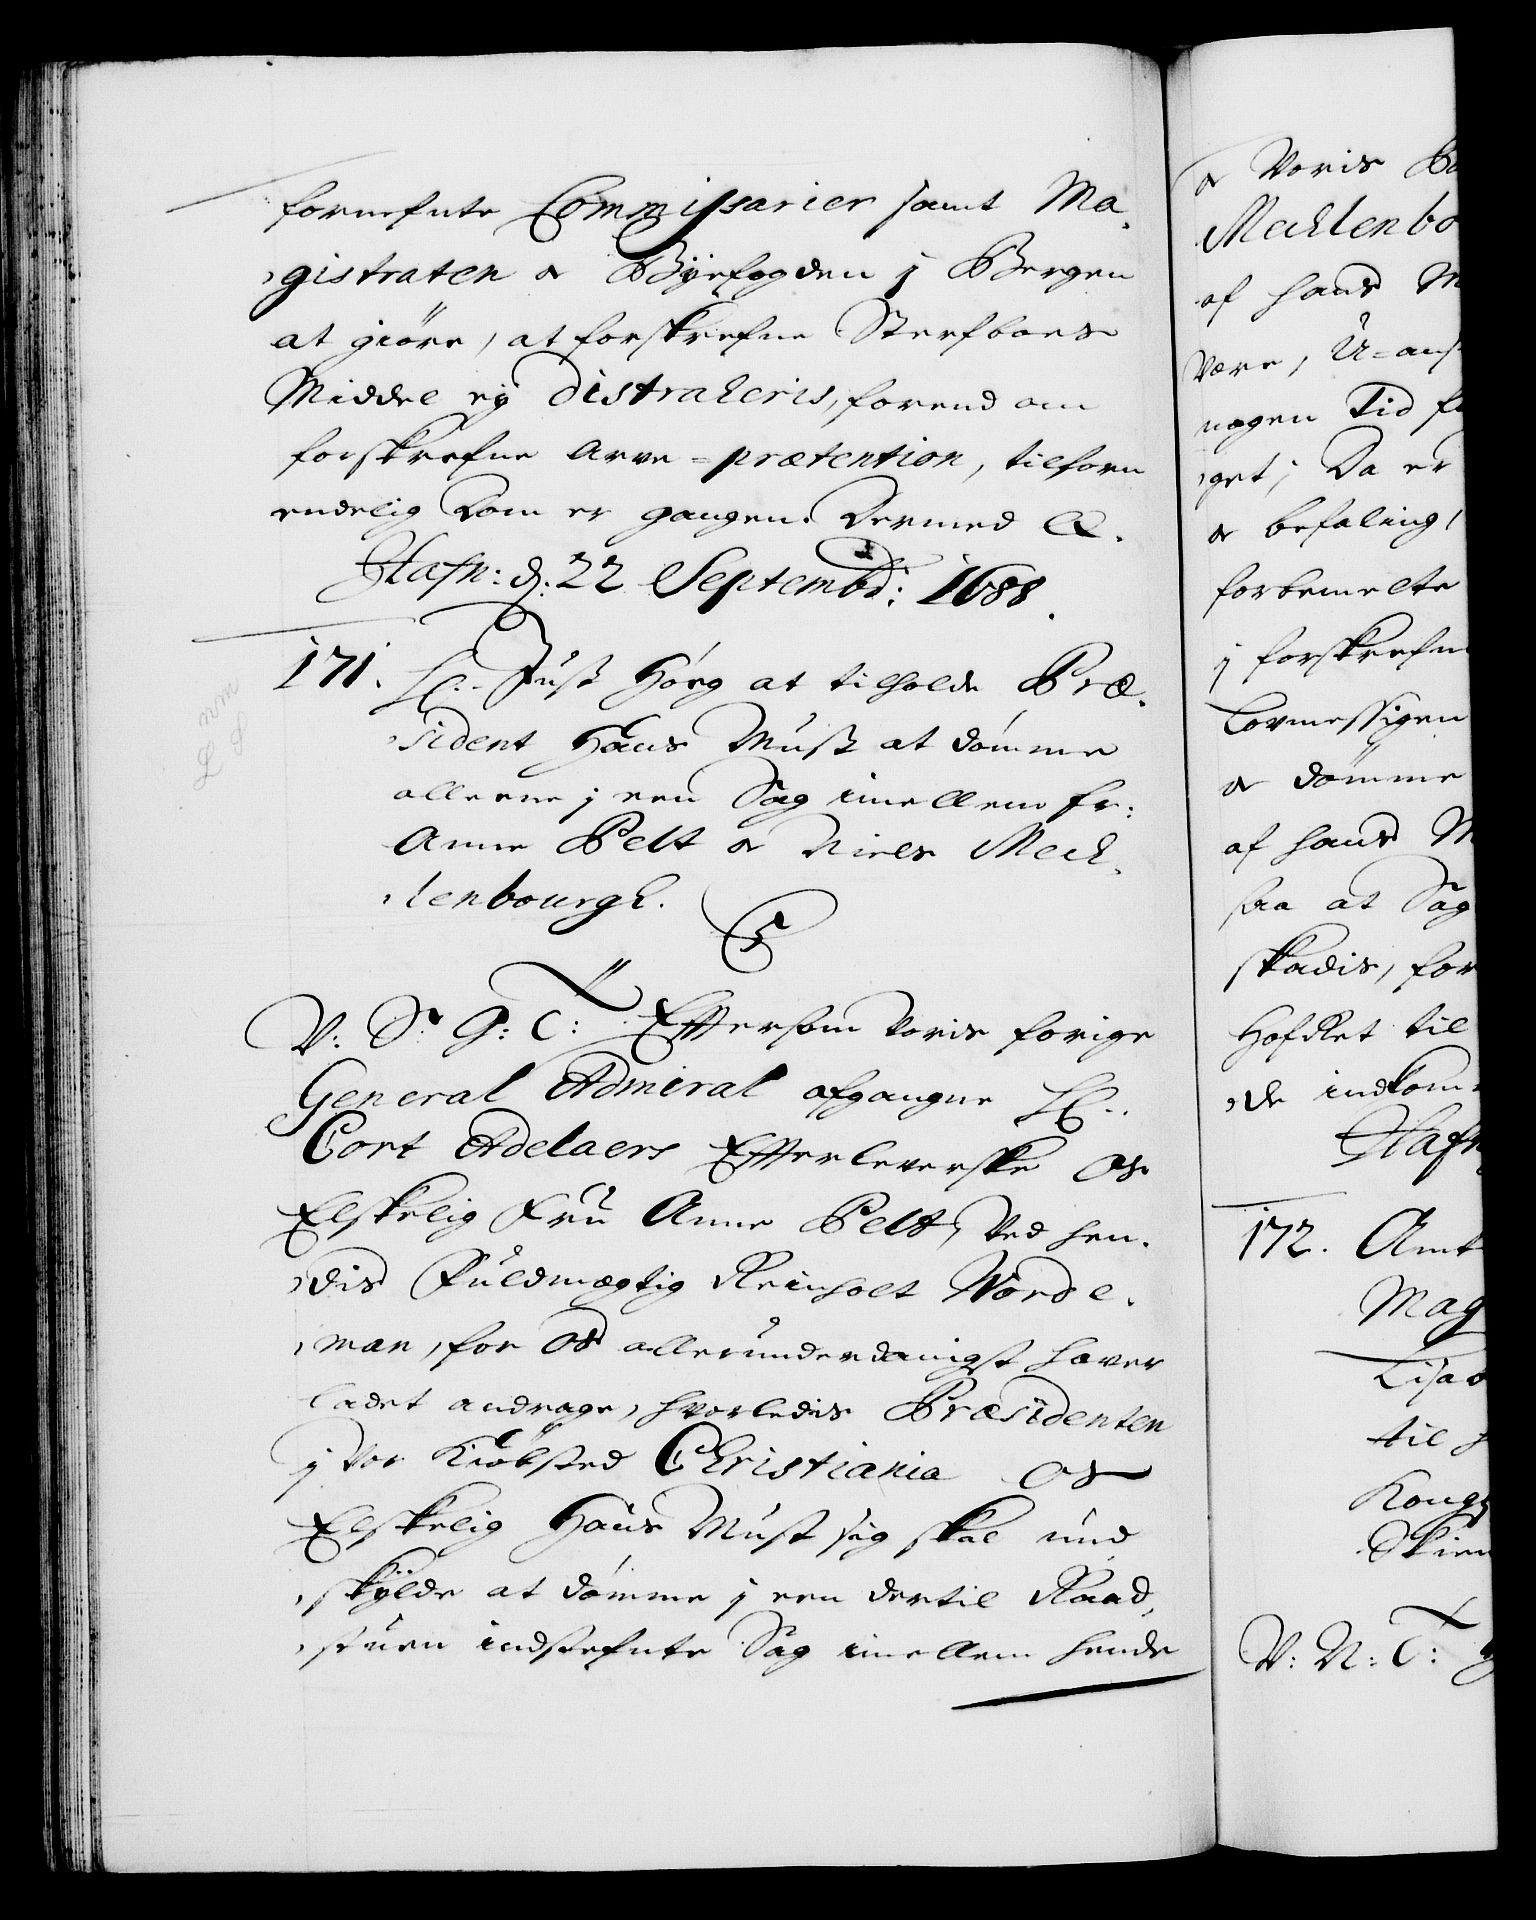 fornefnte Commissarier samt Ma-
gistraten og Byefogden j Bergen
at giöre, at forskrefne Sterfboes
Middel ey distraheris, forend om
forskrefne Arve=prætention, tilforn
endelig Dom er gangen. Dermed &.
Hafn: d: 22 Septembr: 1688.
171. H: Just Høeg at tilholde Præ-
sident Hans Must at dømme
alleene j een Sag imellem fr:
Anne Pelt og Niels Meck-
lenbourgh.
C5
V: S: G: T: Eftersom Voris forige
General Admiral afgangne H:
Cort Adelaers Efterleverske Os
Elskelig Frü Anne Pelt, Ved hen-
dis Füldmægtig Reinholt Worde-
man, for Os allerunderdanigst haver
ladet andrage, hvorledis Præsidenten
j Vor Kiöbsted Christiania Os
Elskelig Hans Must sig skal und
skÿlde at dømme j een dertil Raad-
stuen indstefnte Sag imellem hende
og Voris Bo
Mecklenbo
af hans M
være, U=ans
nogen Tid f
get; Da er
og befaling,
forbemelte
j forskrefn
Lovmessigen
og dömme
af hans M
saa at Sag
skadis, for
HofRet til
de indkom
Hafn
172. Amt
Mag
Lisab
til
Kong
Skien
V: N: T: